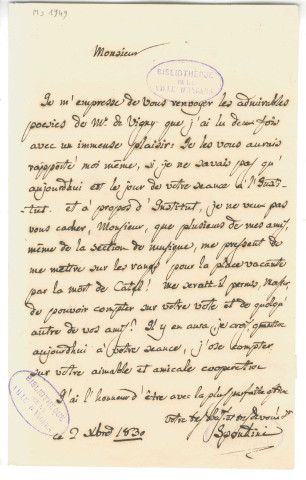 Ms 1949
Monsieur
BIBLIOTHEQUE
DE LA
VILLE D'ANGERS
Je m'empresse de vous renvoyer les admirables
poesies de Mr. de Vigny que j'ai lu deux fois
avec un immense plaisir. Je les vous aurais
rapporté moi même, si je ne savais pas qu'
aujourdhui est le jour de vôtre seance à l'Insti-
tut. et à propos d'Institut, je ne veux pas
vous cacher, Monsieur, que plusieurs de mes amis,
même de la section de musique, me pressent de
me mettre sur les rangs pour la place vacante
par la mort de Catel! me serait-il permis,
de pouvoir compter sur vôtre vote et de quelqu'
autre de vos amis? Il y en aura, je crois, question
aujourdhui à vôtre seance, j'ose compter
sur votre aimable et amicale cooperation
J'ai l'honneur d'être avec la plus parfaite
votre
ce 2 Xbre 1830
Spontini
BIBLIOTHEQUE
DE LA
VILLE D'ANGERS